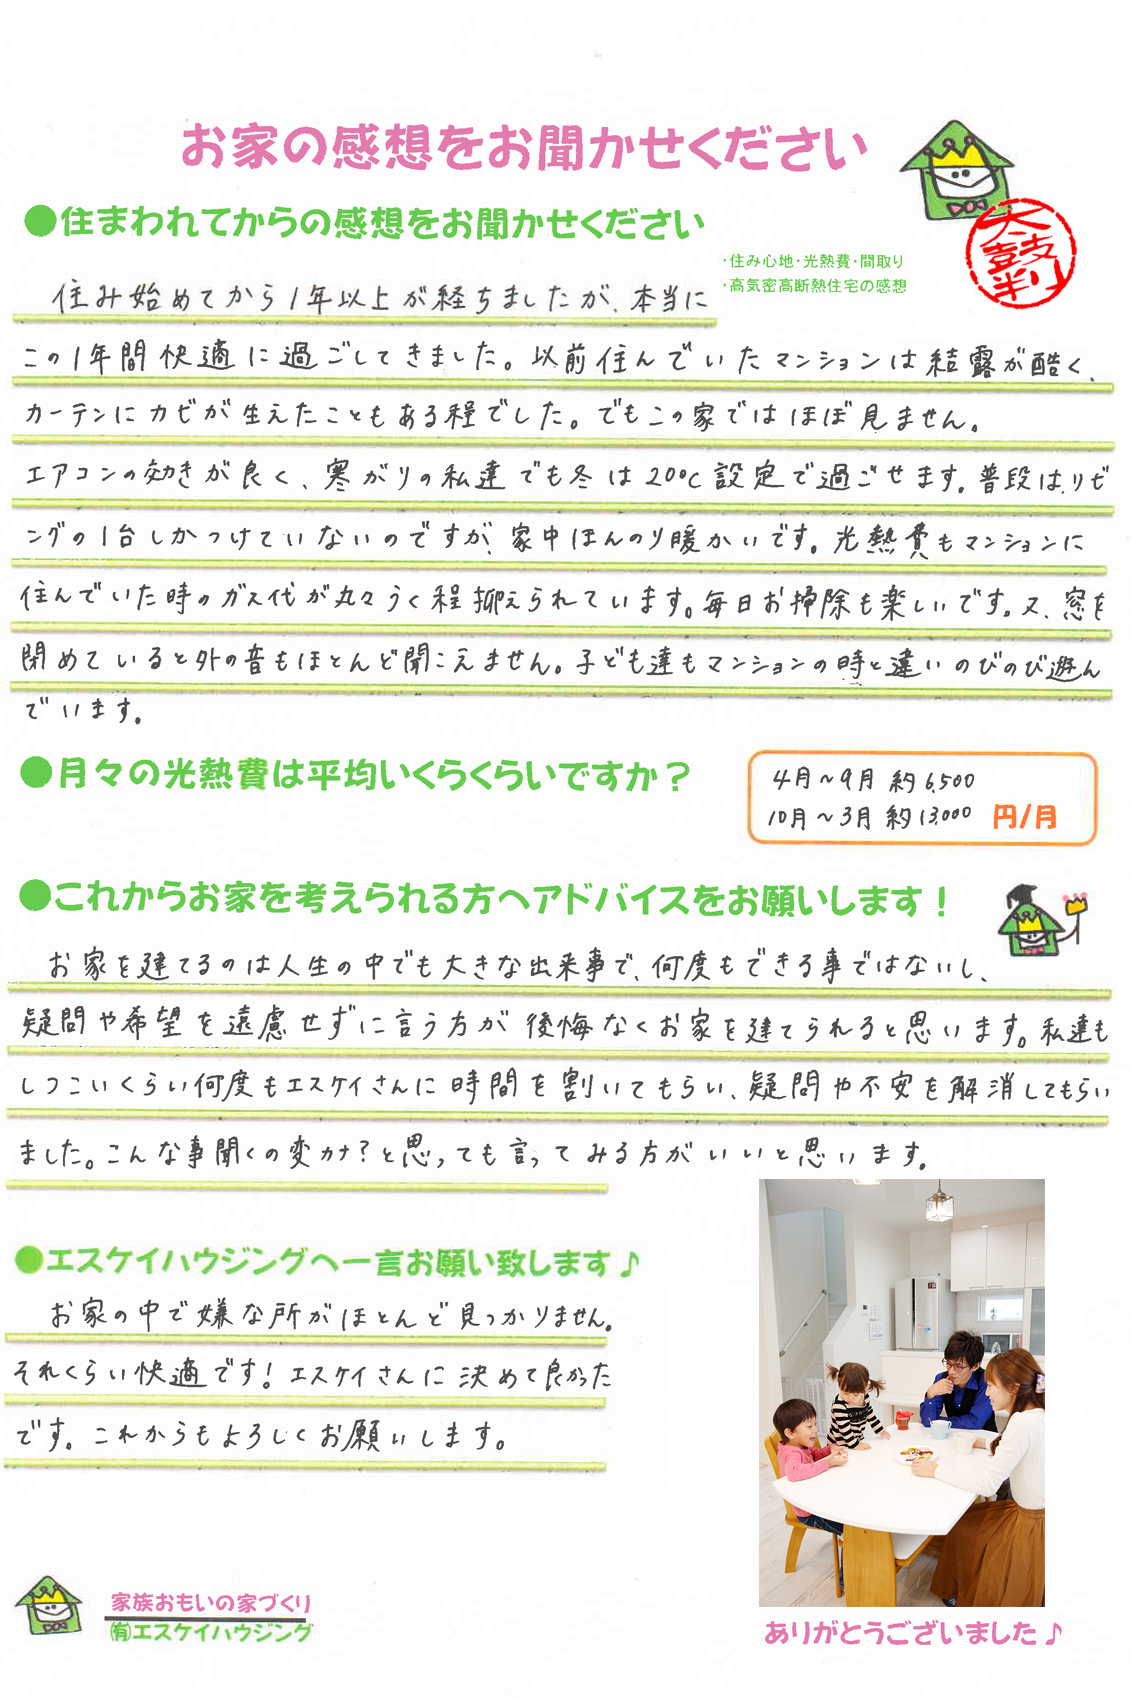 お家の感想をお聞かせください
●住まわれてからの感想をお聞かせください
・住み心地・光熱費・間取り
・高気密高断熱住宅の感想
太鼓判
住み始めてから1年以上が経ちましたが、本当に
この1年間快適に過ごしてきました。以前住んでいたマンションは結露が酷く、
カーテンにカビが生えたこともある程でした。でもこの家ではほぼ見ません。
エアコンの効きが良く、寒がりの私達でも冬は20℃設定で過ごせます。普段はリビ
ングの1台しかつけていないのですが、家中ほんのり暖かいです。光熱費もマンションに
住んでいた時のガス代が丸々うく程抑えられています。毎日お掃除も楽しいです。又、窓を
閉めていると外の音もほとんど聞こえません。子ども達もマンションの時と違いのびのび遊ん
でいます。
●月々の光熱費は平均いくらくらいですか？
4月～9月 約6,500
10月～3月 約13,000 円/月
●これからお家を考えられる方へアドバイスをお願いします！
お家を建てるのは人生の中でも大きな出来事で、何度もできる事ではないし、
疑問や希望を遠慮せずに言う方が後悔なくお家を建てられると思います。私達も
しつこいくらい何度もエスケイさんに時間を割いてもらい、疑問や不安を解消してもらい
ました。こんな事聞くの変カナ？と思っても言ってみる方がいいと思います。
●エスケイハウジングへ一言お願い致します♪
お家の中で嫌な所がほとんど見つかりません。
それくらい快適です！エスケイさんに決めて良かった
です。これからもよろしくお願いします。
家族おもいの家づくり
㈲エスケイハウジング
ありがとうございました♪